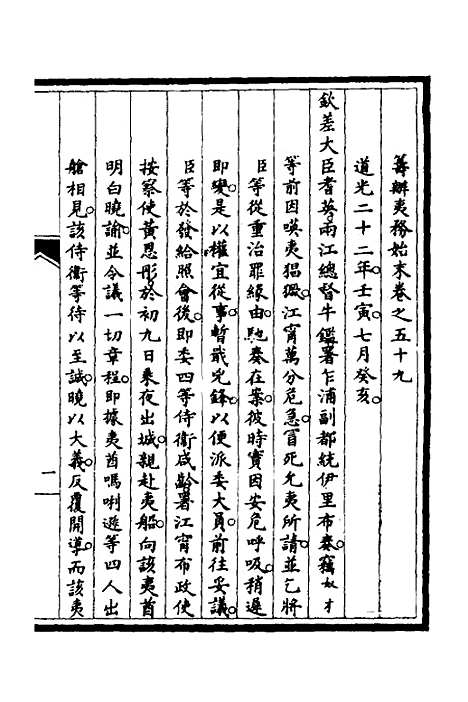 籌辦夷務始末卷之五十九
道光二十二年壬寅七月癸亥
欽差大臣耆英兩江總督牛鑑署乍浦副都統伊里布奏竊奴才
等前因嘆夷猖獗江甯萬分危急冒死允夷所請並乞將
臣等從重治罪緣由馳奏在案彼時實因安危呼吸稍遲
即變是以權宜從事暫戢兇鋒以便派委大員前往妥議
臣等於發給照會後即委四等侍衛咸齡署江甯布政使
按察使黃恩彤於初九日乘夜出城親赴夷船向該夷酋
明白曉諭並令議一切章程即據夷酋嗎唎遜等四人出
艙相見該侍衛等待以至誠曉以大義反覆開導而該夷
一